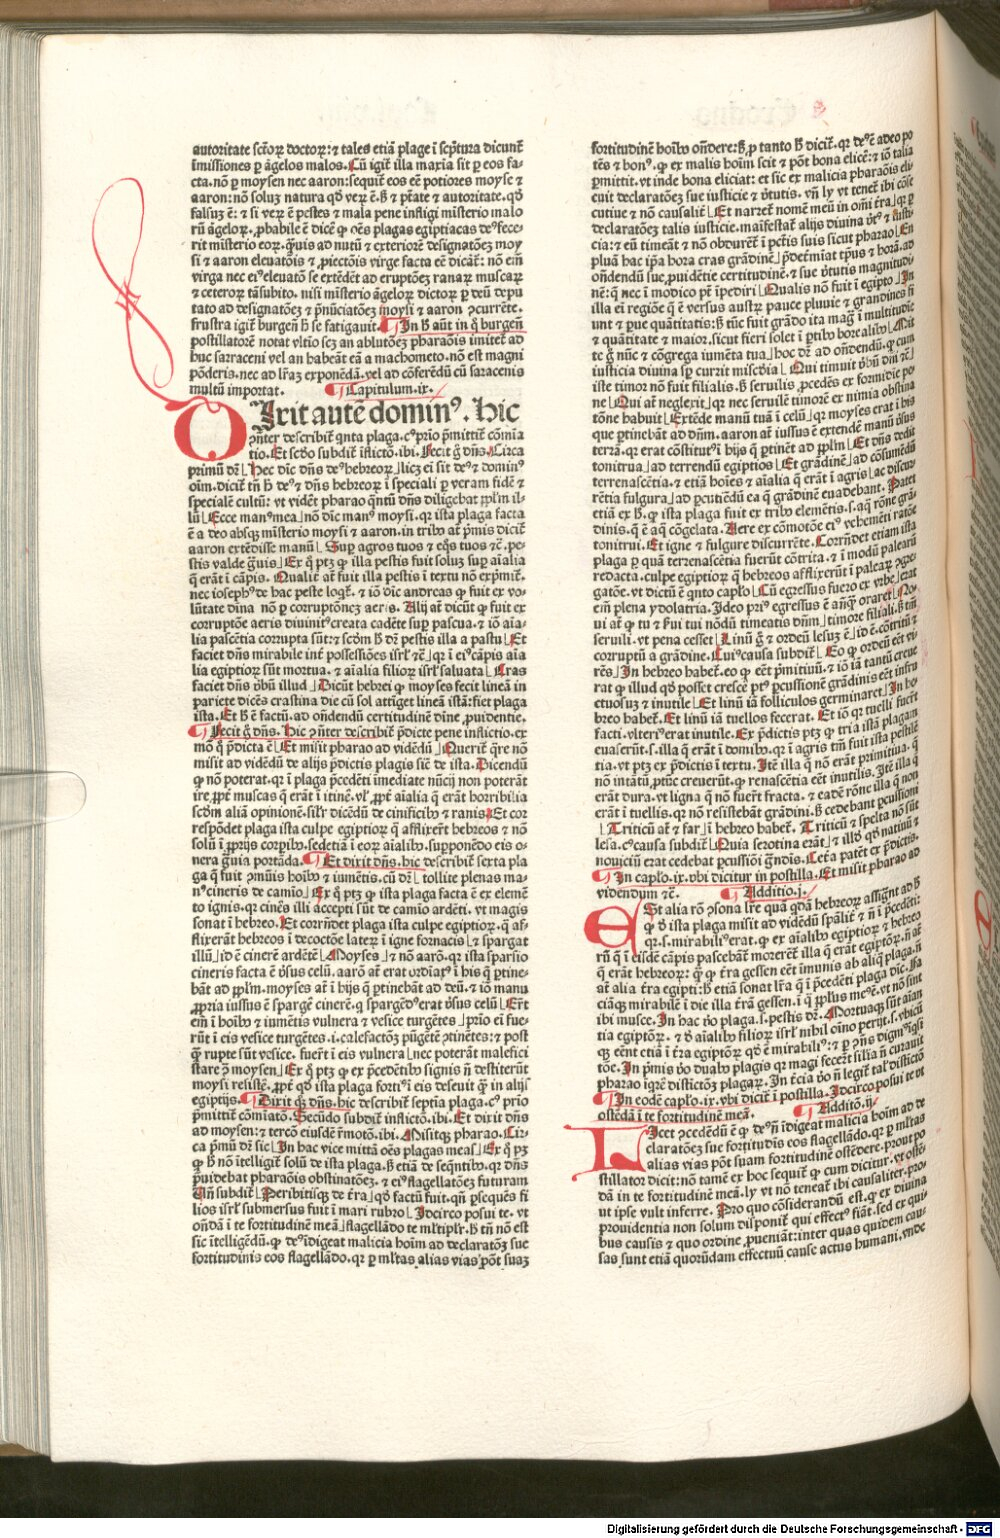 autoritate sctōꝝ doctoꝝ: ⁊ tales etiā plage ī scp̄tura dicunt᷑
īmissiones ꝑ āgelos malos. Cū igit᷑ illa maxīa sit ꝑ eos fa-
cta. nō ꝑ moysen nec aaron: sequit᷑ eos eē potiores moyse ⁊
aaron: nō soluꝫ natura qd̓ veꝝ ē. ß ⁊ p̄tate ⁊ autoritate. qd̓
falsuꝫ ē: ⁊ si veꝝ ē pestes ⁊ mala pene infligi misterio malo
rū āgeloꝝ. ꝓbabile ē dicē ꝙ oēs plagas egiptiacas deꝰ fece-
rit misterio eoꝝ. q̄uis ad nutū ⁊ exteriorē designatōeꝫ moy
si ⁊ aaron eleuatōis ⁊ ꝓiectōis virge facta eē dicāt᷑: nō eīm
virga nec eiꝰ eleuatō se extēdēt ad eruptōeꝫ ranaꝝ muscaꝝ
⁊ ceteroꝝ tāsubito. nisi misterio āgeloꝝ dictoꝝ ꝑ deū depu
tato ad designatōeꝫ ⁊ p̄nūciatōeꝫ moysi ⁊ aaron ꝯcurrēte.
frustra igit᷑ burgeñ ß se fatigauit. ¶ In ß aūt in q̊ burgeñ
postillatorē notat vltīo scꝫ an ablutōeꝫ pharaōis imitet᷑ ad
huc sarraceni vel an habeāt eā a machometo. nō est magni
pōderis. nec ad lr̄aꝫ exponēdā. vel ad cōferēdū cū saracenis
multū importat. ¶ Capitulum .ix.
DIxit autē dominꝰ. Hic
ꝯñter describit᷑ qnta plaga. cꝰ prīo p̄mittit᷑ cōmīa
tio. Et scd̓o subdit᷑ īflictō. ibi. Fecit g̊ dñs. Circa
primū dr̄ ⌊Hec dīc dñs deꝰ hebreoꝝ⌋ licꝫ ei sit deꝰ ⁊ dominꝰ
oīm. dicit᷑ tñ ß deꝰ ⁊ dñs hebreoꝝ ī speciali ꝑ veram fidē ⁊
specialē cultū: vt vidēt pharao q̄ntū dñs diligebat ppl̄m il-
lū ⌊Ecce manꝰ mea⌋ nō dīc manꝰ moysi. qꝛ ista plaga facta
ē a deo absqꝫ misterio moysi ⁊ aaron. in tribꝰ at̄ p̄mis dicit᷑
aaron extēdisse manū⌊ Suꝑ agros tuos ⁊ eq̊s tuos ⁊c̄. pe-
stis valde g̊uis⌋ Ex q̊ ptꝫ ꝙ illa pestis fuit soluꝫ suꝑ aīalia
q̄ erāt ī cāpis. Qualit᷑ at̄ fuit illa pestis ī textu nō exp̄mit᷑.
nec iosephꝰ de hac peste loqt᷑. ⁊ iō dīc andreas ꝙ fuit ex vo-
lūtate dīna nō ꝑ corruptōneꝫ aeris. Alij at̄ dicūt ꝙ fuit ex
corruptōe aeris diuinitꝰ creata cadēte suꝑ pascua. ⁊ iō aīa-
lia pascētia corrupta sūt: ⁊ scd̓m ß dr̄ pestis illa a pastu⌊ Et
faciet dñs mirabile int̄ possessiōes isrl̄ ⁊c̄⌋ qꝛ ī eiꝰ cāpis aīa
lia egiptioꝝ sūt mortua. ⁊ aīalia filioꝝ isrl̄ saluata⌊ Cras
faciet dñs ꝟbū illud⌋ Dicūt hebrei ꝙ moyses fecit lineā in
pariete dicēs crastina die cū sol attīget lineā istā: fiet plaga
ista. Et ß ē factū. ad oñdendū certitudinē dīne ꝓuidentie.
¶ Fecit g̊ dñs. Hic ꝯñter describit᷑ p̄dicte pene inflictio. ex
mō q̊ p̄dicta ē⌊ Et misit pharao ad vidēdū⌋ Querit᷑ q̄re nō
misit ad vidēdū de alijs p̄dictis plagis sic̄ de ista. Dicendū
ꝙ nō poterat. qꝛ ī plaga p̄cedēti īmediate nūcij non poterāt
ire ꝓpt᷑ muscas q̄ erāt ī itinē. vl̓ ꝓpt᷑ aīalia q̄ erāt horribilia
scd̓m aliā opinionē. silr̄ dicēdū de cinificibꝰ ⁊ ranis⌊ Et cor
respōdet plaga ista culpe egiptioꝝ q̄ affixerūt hebreos ⁊ nō
solū ī ꝓprijs corpibꝰ. sedetiā ī eoꝝ aīalibꝰ. supponēdo eis o-
nera g̊uia portāda. ¶ Et dixit dñs. hic describit᷑ sexta pla
ga q̄ fuit ꝯmūis hoībꝰ ⁊ iumētis. cū dr̄⌊ tollite plenas ma-
nꝰ cineris de camīo⌋ Ex q̊ ptꝫ ꝙ ista plaga facta ē ex elemē
to ignis. qꝛ cinēs illi accepti sūt de camīo ardēti. vt magis
sonat ī hebreo. Et corrñdet plaga ista culpe egiptioꝝ. q̄ af-
flixerāt hebreos ī decoctōe lateꝝ ī igne fornacis⌊ ⁊ spargat
illū⌋ id ē cinerē ardētē⌊ Moyses⌋ ⁊ nō aarō. qꝛ ista sparsio
cineris facta ē ꝟsus celū. aarō at̄ erat ordīatꝰ ī his q̄ ꝑtine-
bāt ad ppl̄m. moyses at̄ ī hijs q̄ ꝑtinebāt ad deū. ⁊ iō manu
ꝓpria iussus ē spargē cinerē. q̄ spargēdꝰ erat ꝟsus celū⌊ Er̄t
eīm ī hoībꝰ ⁊ iumētis vulnera ⁊ vesice turgētes⌋ prīo ei fue-
rūt ī eis vesice turgētes. i. calefactōꝫ pūgētē ꝯtinētes: ⁊ post
q̄ rupte sūt vesice. fuer̄t ī eis vulnera⌊ nec poterāt malefici
stare ꝯ̄ moysen⌋ Ex q̊ ptꝫ ꝙ ex p̄cedētibꝰ signis ñ destiterūt
moysi resistē. ꝓpt᷑ qd̓ ista plaga fortiꝰ ī eis deseuit q̄ in alijs
egiptijs. ¶ Dixit qꝫ dñs. hic describit᷑ septīa plaga. cꝰ prīo
p̄mittit᷑ cōmīatō. Secūdo subdit᷑ inflictō. ibi. Et dixit dñs
ad moysen: ⁊ tercō eiusdē r̄motō. ibi. Misitqꝫ pharao. Cir-
ca p̄mū dr̄ sic⌊ In hac vice mittā oēs plagas meas⌋ Ex q̊ ptꝫ
ꝙ ß nō ītelligit᷑ solū de ista plaga. ß etiā de seqñtibꝰ. qꝛ dñs
p̄uidebat pharaōis obstinatōeꝫ. ⁊ eiꝰ flagellatōeꝫ futuram
Uñ subdit⌊ Peribitisqꝫ de t̄ra⌋ qd̓ factū fuit. qñ ꝑsequēs fi
lios isrl̄ submersus fuit ī mari rubro⌊ Idcirco posui te. vt
oñdā ī te fortitudinē meā⌋ flagellādo te ml̓tiplr̄. ß tñ nō est
sic ītelligēdū. ꝙ deꝰ īdigeat malicia hoīm ad declaratōꝫ sue
fortitudinis eos flagellādo. qꝛ ꝑ ml̓tas alias vias pōt suaꝫ
fortitudinē hoībꝰ oñdere: ß, ꝓ tanto ß dicit᷑. qꝛ deꝰ ē adeo po
tēs ⁊ bonꝰ. ꝙ ex malis hoīm scit ⁊ pōt bona elicē: ⁊ iō talia
ꝑmittit. vt inde bona eliciat: et sic ex malicia pharaōis eli
cuit declaratōeꝫ sue iusticie ⁊ ꝟtutis. vñ ly vt tenet᷑ ibi cōse
cutiue ⁊ nō causalit᷑⌊ Et narret᷑ nomē meū in oīm t̄ra⌋ qꝛ ꝑ
declaratōeꝫ talis iusticie. maīfestat᷑ alijs diuina ꝟtꝰ ⁊ iusti-
cia: ⁊ eū timeāt ⁊ nō obduret᷑ ī pctīs suis sicut pharao⌊ En
pluā hac ip̄a hora cras grādinē⌋ p̄det᷑miat tp̄us ⁊ horā. ad
oñdendū sue ꝓuidētie certitudinē. ⁊ sue ꝟtutis magnitudi
nē: q̄ nec ī modico pt̄ īpediri⌊ Qualis nō fuit ī egipto⌋ In
illa ei regiōe q̄ ē versus austꝝ pauce pluuie ⁊ grandines fi
unt ⁊ pue quātitatis: ß tūc fuit grādo ita mag̓ ī multitudie
⁊ quātitate ⁊ maior. sicut fieri solet ī ꝑtibꝰ borealibꝰ⌊ Mit
te g̊ nūc ⁊ cōgrega iumēta tua⌋ hoc dr̄ ad oñdendū. ꝙ cum
iusticia diuina sꝑ currit misc̄dia⌊ Qui timuit ꝟbū dnī ⁊c̄⌋
iste timor nō fuit filialis. ß seruilis ꝓcedēs ex formidie pe
ne⌊ Qui at̄ neglexit⌋ qꝛ nec seruilē timorē ex nimia obstina
tōne habuit⌊ Extēde manū tuā ī celū⌋ qꝛ moyses erat ī his
que ꝑtinebāt ad dñm. aaron at̄ iussus ē extendē manū ꝟsus
terrā. qꝛ erat cōstitutꝰ ī hijs q̄ ꝑtinēt ad ppl̄m⌊ Et dñs dedit
tonitrua⌋ ad terrendū egiptios⌊ Et grādinē⌋ ad cōsumēdū
terrenascētia. ⁊ etiā hoīes ⁊ aīalia q̄ erāt ī agris⌊ ac discur-
rētia fulgura⌋ ad ꝑcutiēdū ea q̄ grādinē euadebant. Patet
etiā ex ß. ꝙ ista plaga fuit ex tribꝰ elemētis. s. aq̄ rōne grā-
dinis. q̄ ē aq̄ cōgelata. Aere ex cōmotōe eiꝰ vehemēti ratōe
tonitrui. Et igne ⁊ fulgure discurrēte. Corrñdet etiam ista
plaga ꝑ quā terrenascētia fuerūt cōtrita. ⁊ ī modū palearū
redacta. culpe egiptioꝝ q̄ hebreos afflixerūt ī paleaꝝ ꝯgre-
gatōe. vt dictū ē q̊nto caplo⌊ Cū egressus fuero ex vrbe⌋ erat
eīm plena ydolatria. Ideo priꝰ egressus ē añq̄ oraret⌊ No-
ui at̄ ꝙ tu ⁊ s̓ui tui nōdū timeatis dñm⌋ timore filiali. ß tm̄
seruili. vt pena cesset⌊ Linū g̊ ⁊ ordeū lesuꝫ ē⌋ id ē. cōtritū ⁊
corruptū a grādine. Cuiꝰ causa subdit᷑⌊ Eo ꝙ ordeū eēt vi
rēs⌋ In hebreo habet᷑. eo ꝙ eēt p̄mitiuū. ⁊ iō iā tantū creue
rat ꝙ illud qd̓ posset crescē ptꝰ ꝑcussionē grādinis eēt infru
ctuosuꝫ ⁊ inutile⌊ Et linū iā folliculos germinaret⌋ In he-
breo habet᷑. Et linū iā tuellos fecerat. Et iō qꝛ tuelli fuer̄t
facti. vlteriꝰ erat inutile. Ex p̄dictis ptꝫ ꝙ tria istā plagam
euaserūt. s. illa q̄ erāt ī domibꝰ. qꝛ ī agris tm̄ fuit ista pestilē
tia. vt ptꝫ ex p̄dictis ī textu. Itē illa q̄ nō erāt primitiua. q̄
nō intātū ꝓtūc creuerūt. ꝙ renascētia eēt inutilis. Itē illa q̄
erāt dura. vt ligna q̄ nō fuer̄t fracta. ⁊ eadē rōne illa q̄ non
erāt ī tuellis. qꝛ nō resistebāt grādini. ß cedebant ꝑcussioni
⌊Triticū at̄ ⁊ far⌋ ī hebreo habet᷑. Triticū ⁊ spelta nō sūt
lesa. cꝰ causa subdit᷑⌊ Quia serotina erāt⌋ ⁊ illd̓ qd̓ natiuū ⁊
nouiciū erat cedebat ꝑcussiōi g̊ndīs. Cet̓a patēt ex p̄dictis.
¶ In caplo .ix. vbi dicitur in postilla. Et misit pharao ad
videndum ⁊c̄. ¶ Additio .j.
ESt alia rō ꝯsona lr̄e quā qd̓ā hebreoꝝ assig̓nt ad ß
ꝙ ī ista plaga misit ad vidēdū spālit᷑ ⁊ ñ ī p̄cedēti:
qꝛ. s. mirabiliꝰ erat. ꝙ ex aīalibꝰ egiptioꝝ ⁊ hebreo
rū q̄ ī eisdē cāpis pascebāt᷑ morerēt᷑ illa q̄ erāt egiptioꝝ. ñ at̄
q̄ erāt hebreoꝝ: q̄ ꝙ t̄ra gessen eēt īmunis ab aliq̄ plaga. ñ
at̄ alia t̄ra egipti: ß etiā sonat lr̄a q̄ ī p̄cedēti plaga dīc. Fa
ciāqꝫ mirabilē ī die illa t̄rā gessen. ī q̄ pplꝰ meꝰ ē. vt nō sint
ibi musce. In hac ꝟo plaga. s. pestis dr̄. Mortuaqꝫ sūt aīan
tia egiptioꝝ. ⁊ d̓ aīalibꝰ filioꝝ isrl̄ nihil oīno perijt. s. vbicū
qꝫ eēnt etiā ī t̄ra egiptioꝝ qd̓ ē mirabiliꝰ: ⁊ ꝑ ꝯñs digniꝰ īqsi
tōe. In p̄mis ꝟo duabꝰ plagis qꝛ magi fecer̄t silia ñ curauit
pharao īqrē distictōꝫ plagaꝝ. In t̄cia ꝟo ñ legit᷑ tal̓ distictō
¶ In eodē caplo .ix. vbi dicit᷑ ī postilla. Idcirco posui te vt
ostēdā ī te fortitudinē meā. ¶ Additō .ij.
LIcet ꝯcedēdū ē ꝙ deꝰ ñ īdigeat malicia hoīm ad de
claratōeꝫ sue fortitudis eos flagellādo. qꝛ ꝑ ml̓tas
alias vias pōt suam fortitudinē ostēdere. prout po
stillator dicit: nō tamē ex hoc sequit᷑ ꝙ cum dicitur. vt ostē-
dā in te fortitudinē meā. ly vt nō teneat᷑ ibi causaliter. pro-
ut ipse vult inferre. Pro quo cōsiderandū est. ꝙ ex diuina
prouidentia non solum disponit᷑ qui effectꝰ fiāt. sed ex qui
bus causis ⁊ quo ordine ꝓueniāt: inter quas quidem cau-
sas sunt etiā quorūdam effectuū cause actus humani. vnde
Digitalisierung gefördert durch die Deutsche Forschungsgemeinschaft - DFG